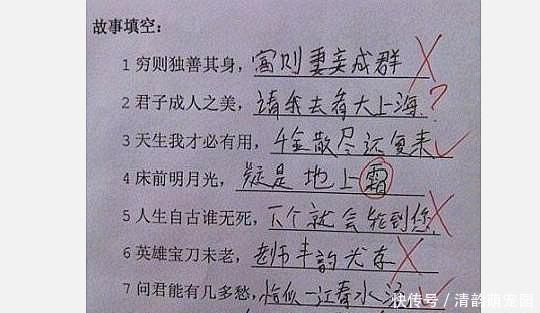 故事填空:
1 穷则独善其身，富则妻妾成群
2 君子成人之美，请我去看大上海?
3 天生我才必有用，千金散尽还复来
4 床前明月光，疑是地上霜
5 人生自古谁无死，下个就会轮到您
6 英雄宝刀未老，老师丰韵犹存
7 问君能有几多愁，恰似一江春水
快传号 / 清韵萌宠园